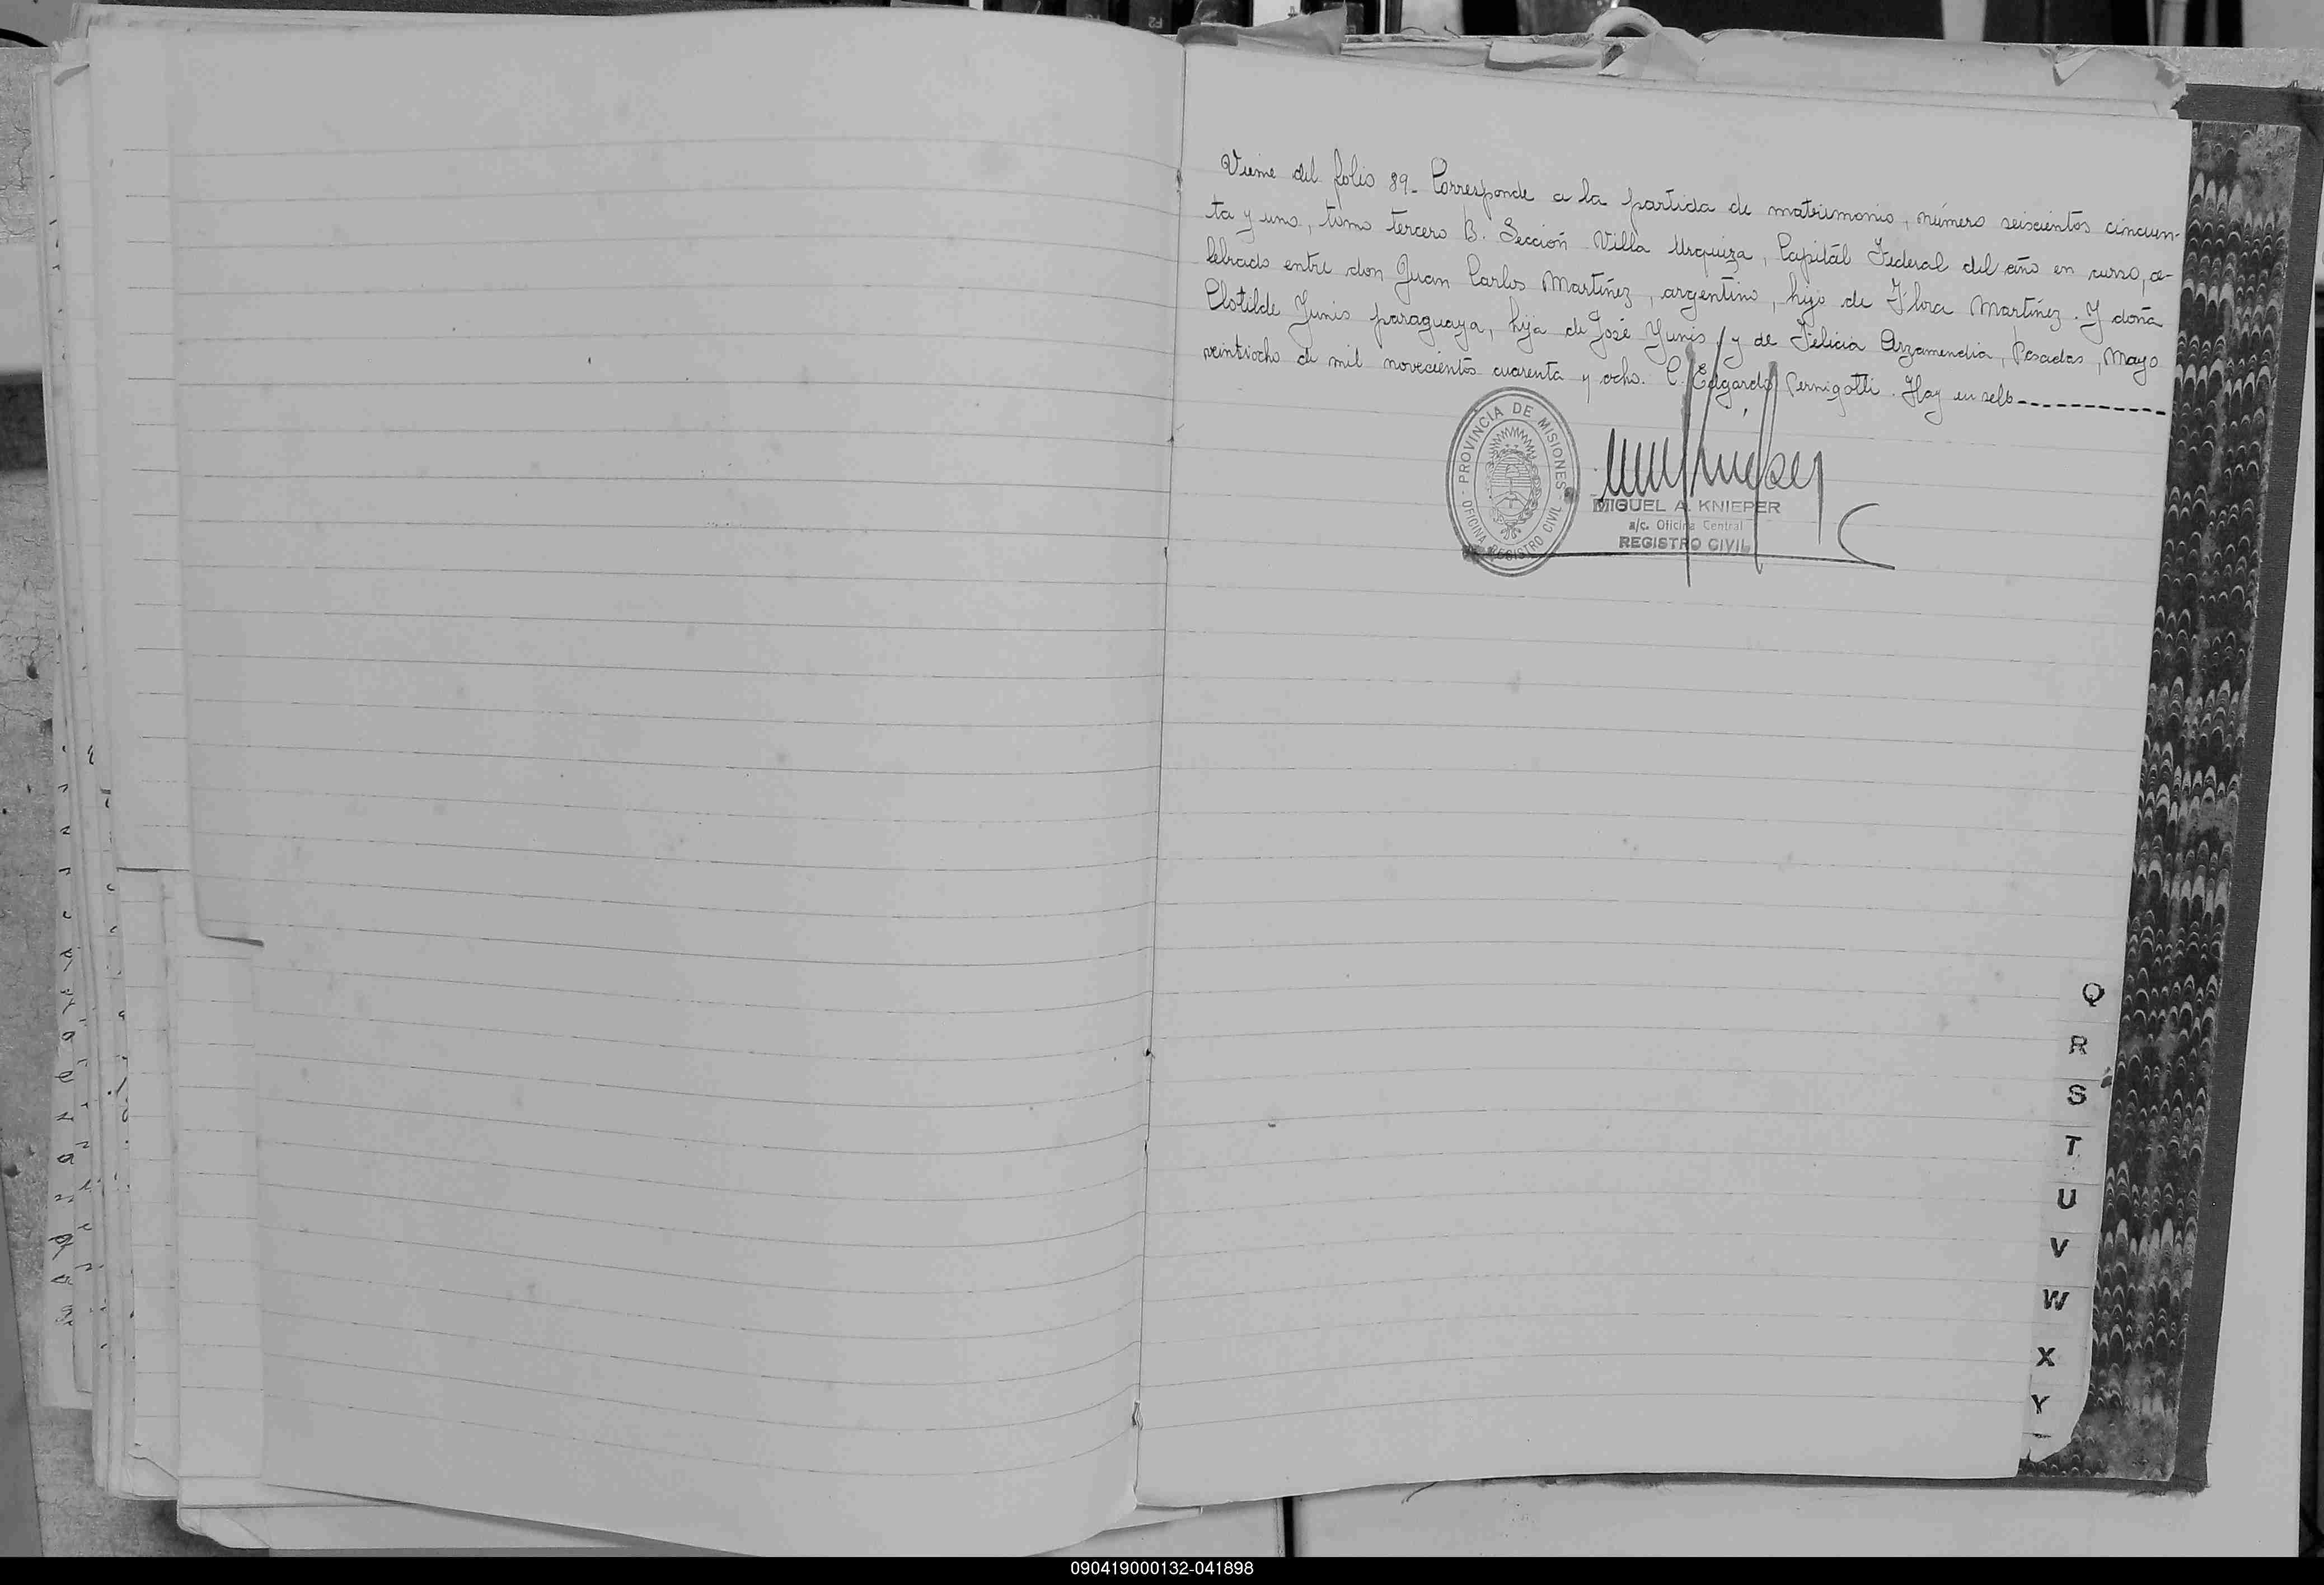 Viene del folio 89_ Corresponde a la partida de matrimonio, número seiscientos cincuen-
ta y uno, tomo tercero B. Sección Villa Urquiza, Capitál Federal del año en curso, ce-
lebrado entre don Juan Carlos Martínez, argentino, hijo de Flora Martínez. Y doña
Clotilde Yunis paraguaya, hija de José Yunis, y de Felicia Arzamendia, Posadas, Mayo
veintiocho de mil novecientos cuarenta y ocho. C. Edgardo Pernigotti. Hay un sello
PROVINCIA DE MISIONES
OFICINA REGISTRO CIVIL
MIGUEL A. KNIEPER
a/c. Oficina Central
REGISTRO CIVIL
Q
R
S
T
U
V
W
X
Y
090419000132-041898